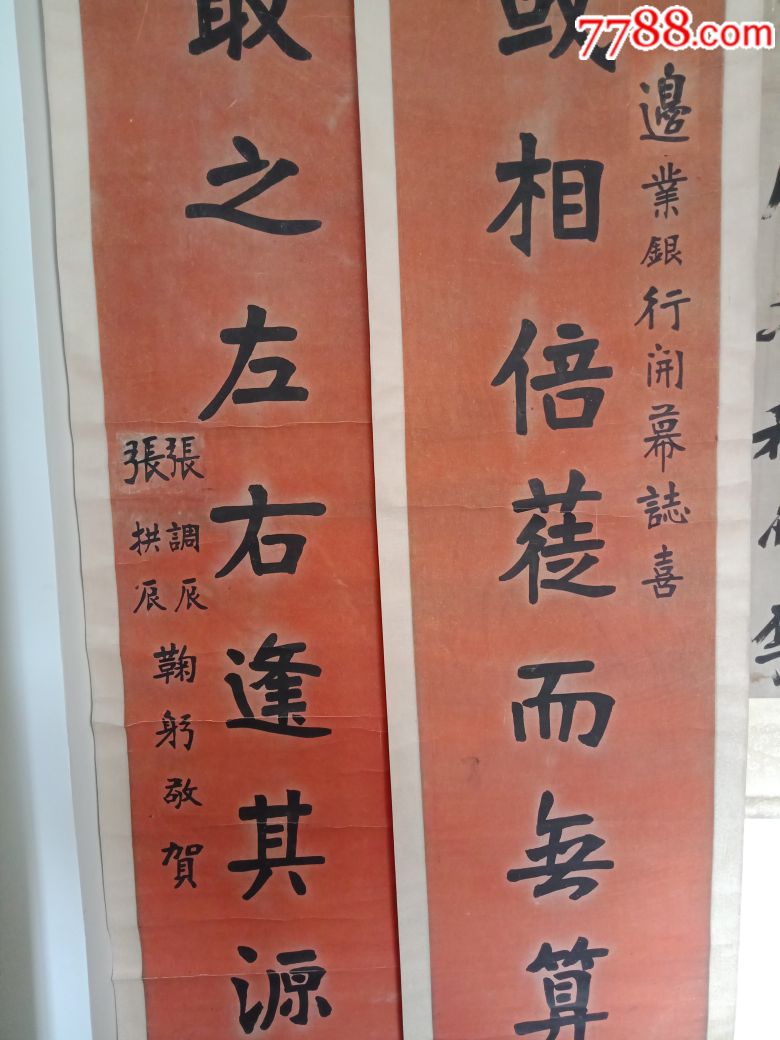 7788.com
邊業銀行開幕誌喜
或相倍蓰而無算
取之左右逢其源
張調辰
張拱辰
鞠躬敬賀